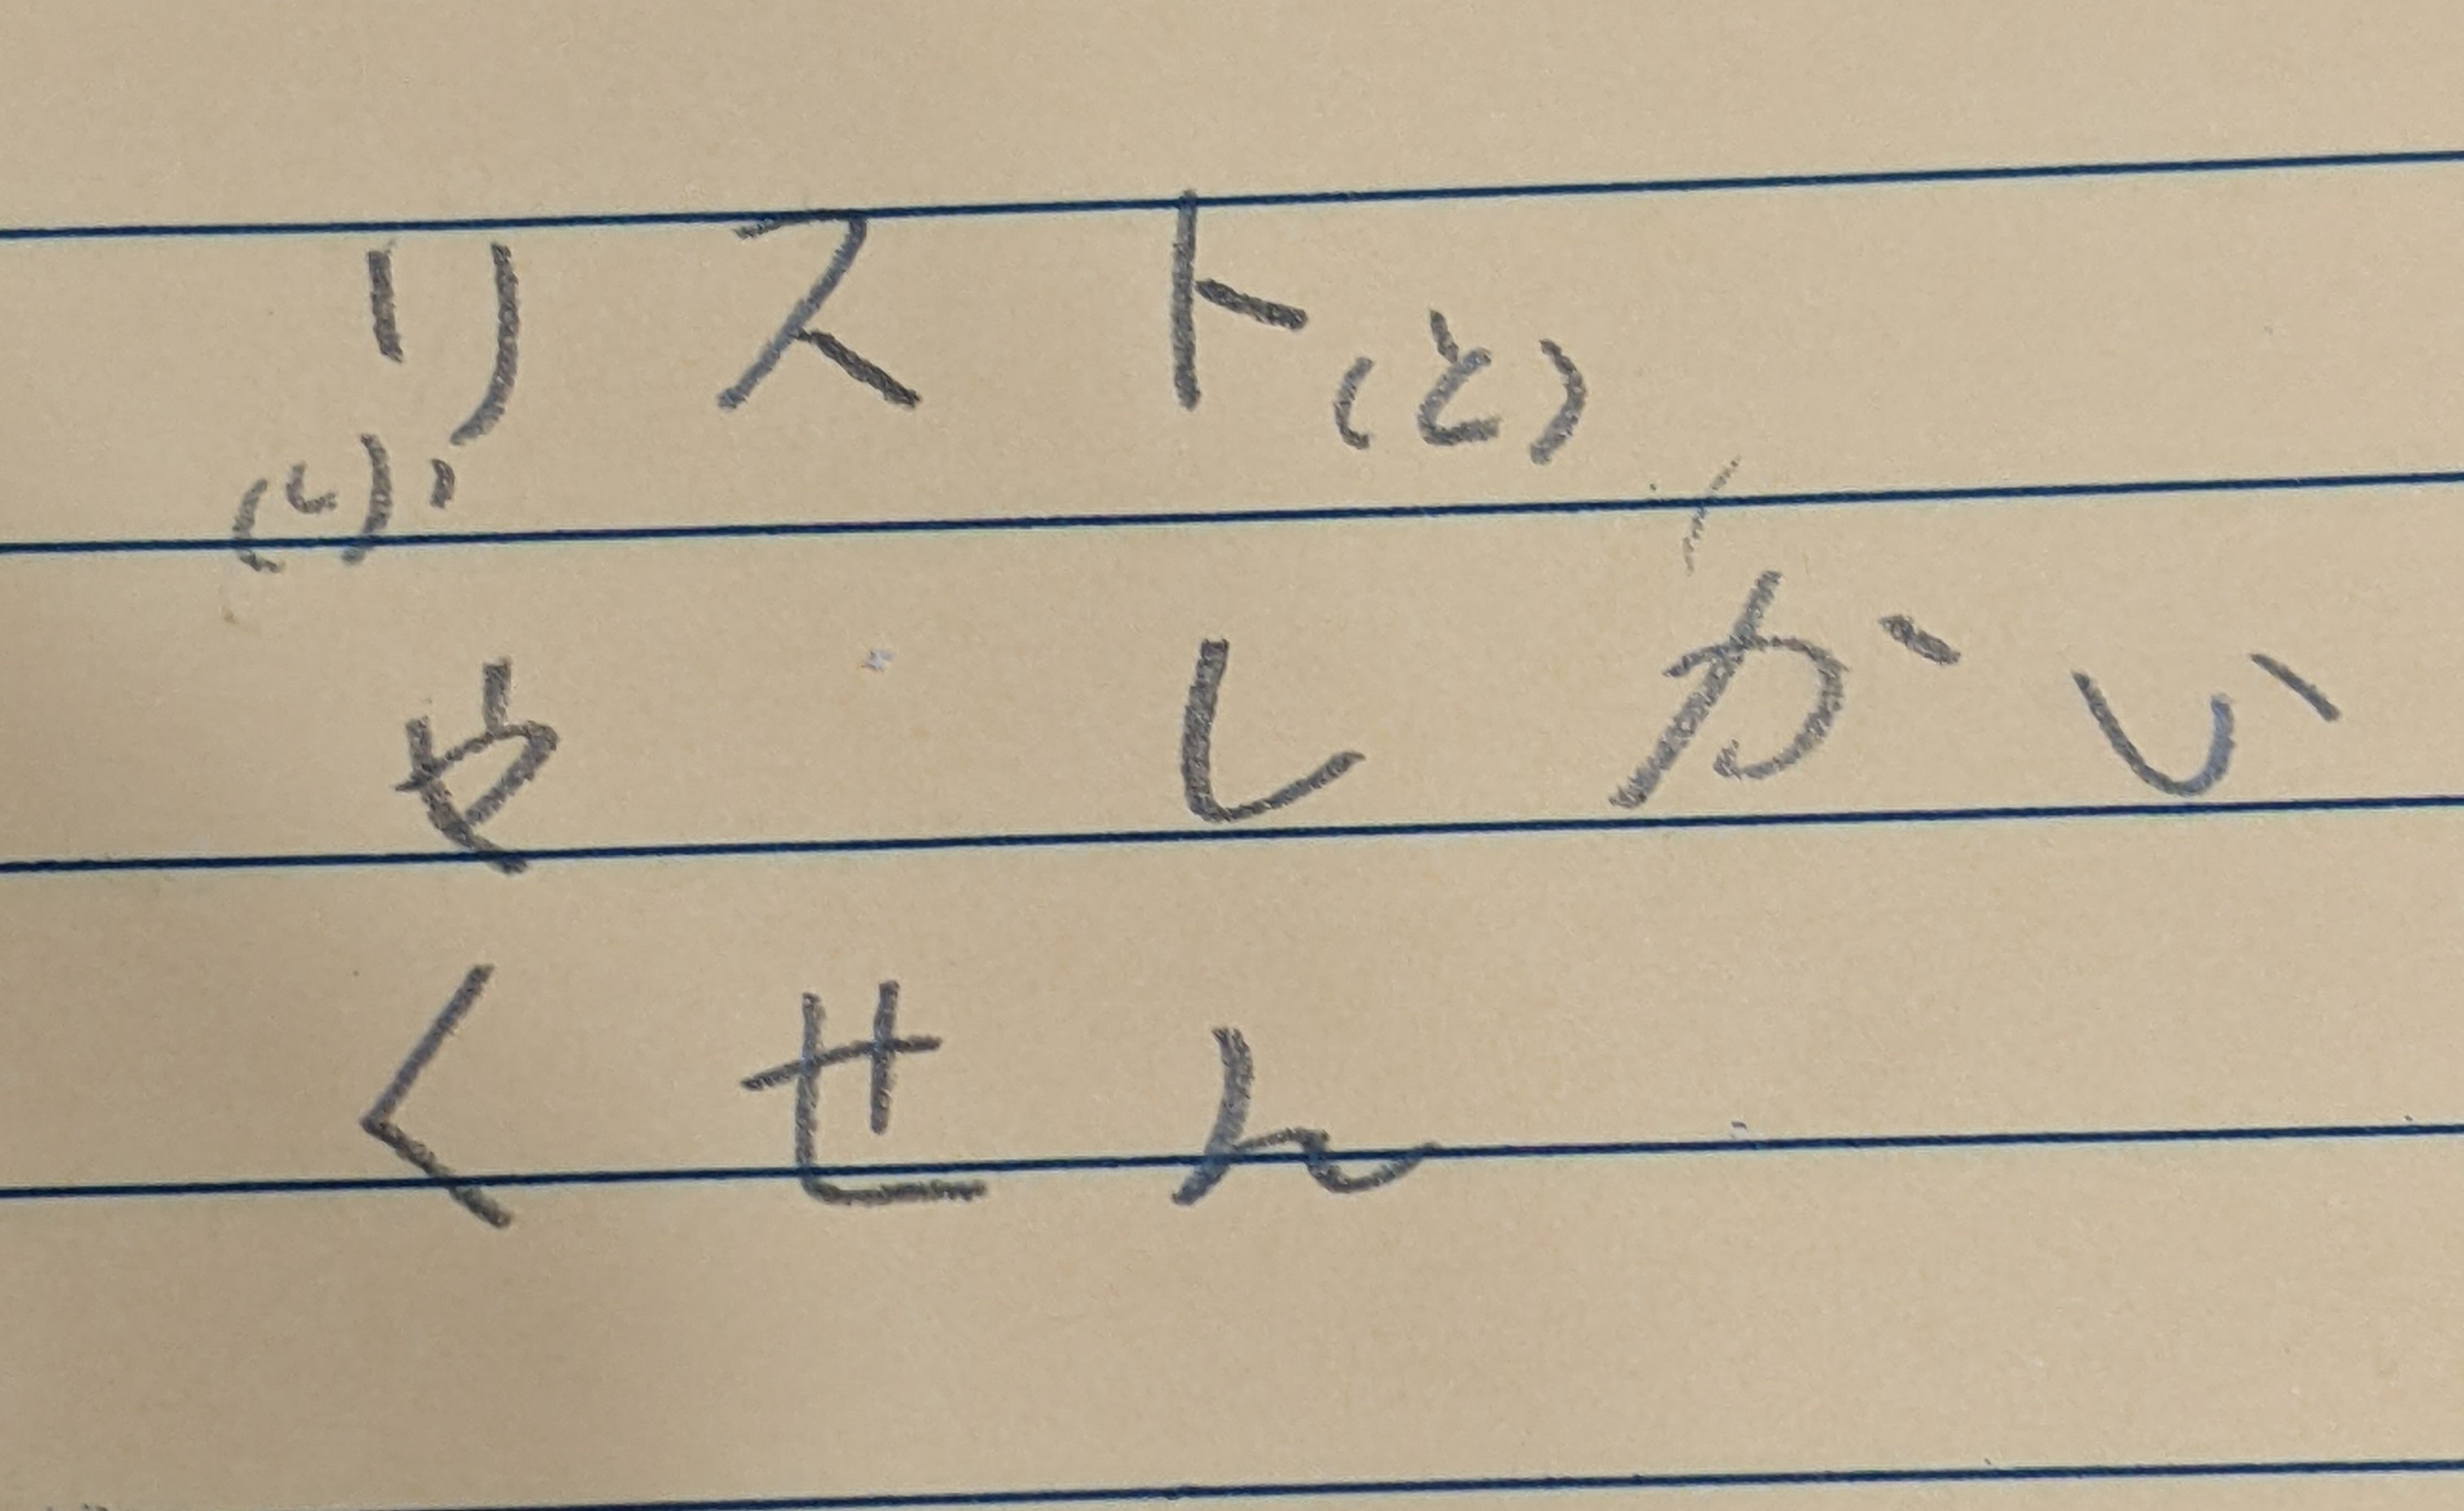 リ ス ト (と)
や し か い
く せ ん